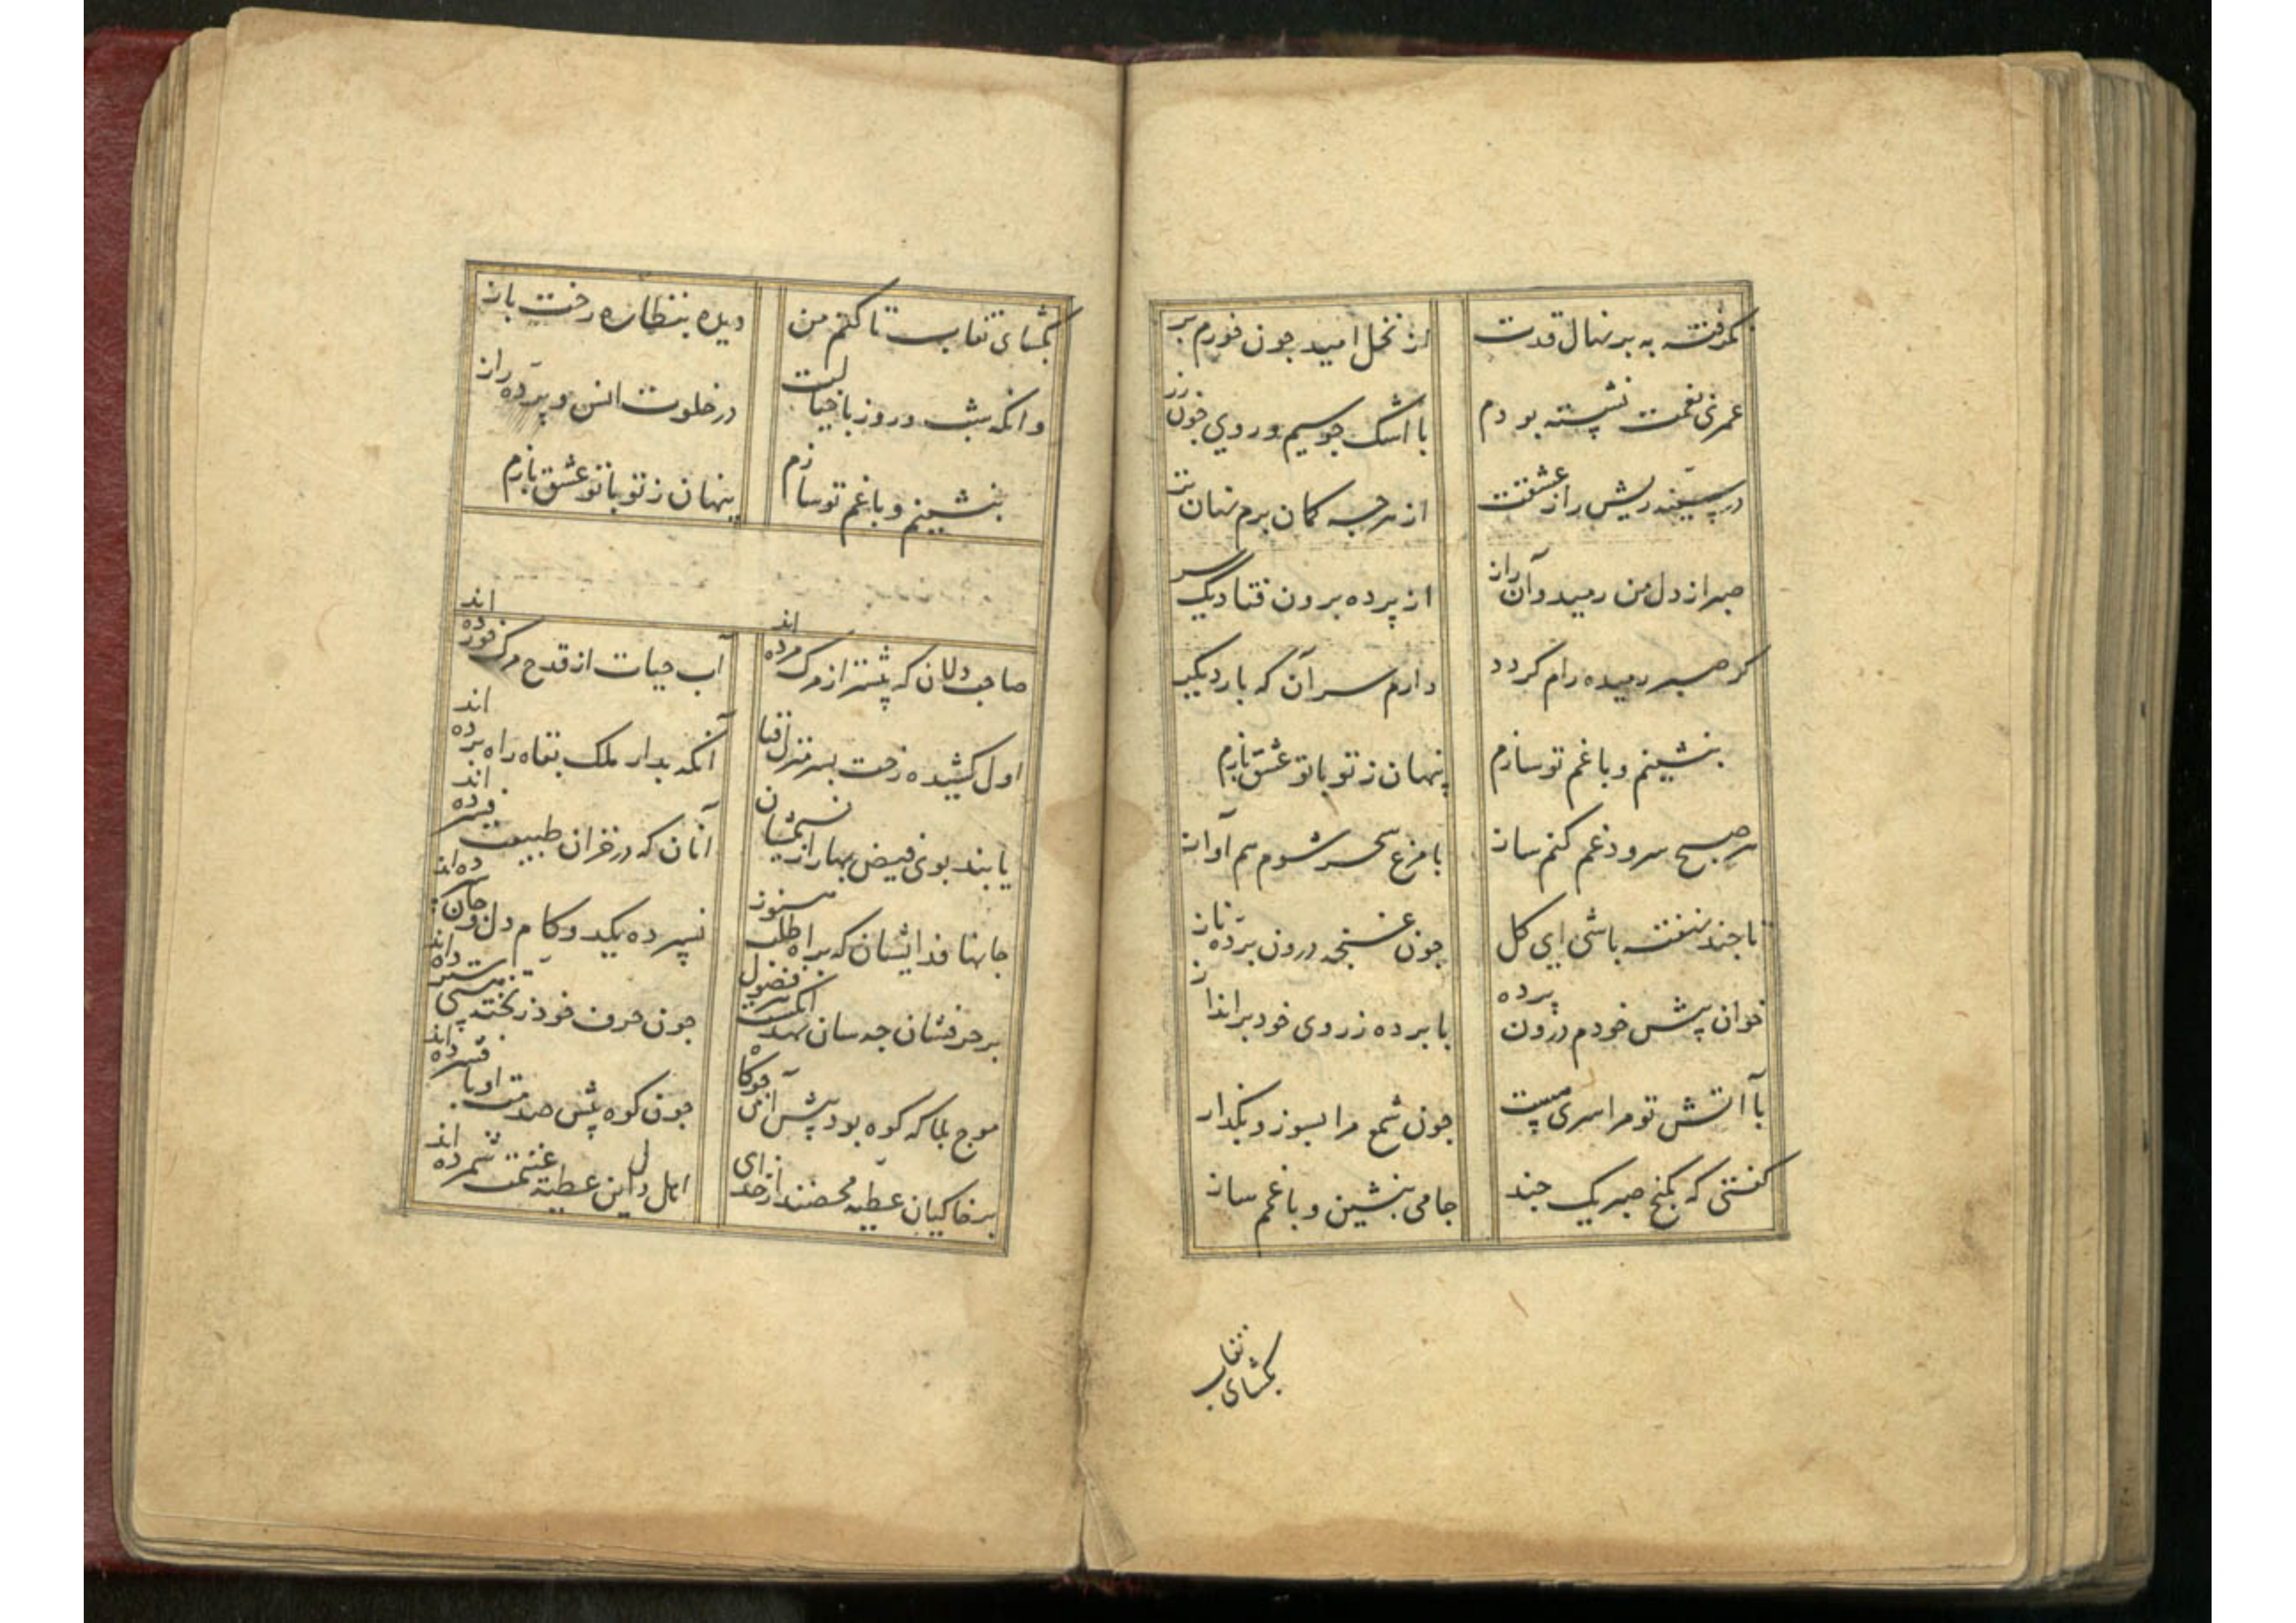 نگرفته به بر نهال قدت از نخل امید چون خورم بر
عمری بغمت نشسته بودم با اشک چو سیم و روی چون زر
در سینه ریش راز عشقت از هرچه کمان برم نهان تر
صبر از دل من رمید و آن راز از پرده برون فتاد یکسر
کر صبر رمیده رام کردد دارم سر آن که بار دیکر
بنشینم و با غم تو سازم پنهان ز تو با تو عشق بازم
هر صبح سرود غم کنم ساز با مرغ سحر شوم هم آواز
تا چند نهفته باشی ای کل چون غنچه درون پرده ناز
خوان پیش خودم درون پرده یا پرده ز روی خود برانداز
با آتش تو مرا سری هست چون شمع مرا بسوز و بکداز
کفتی که بکنج صبر یک چند جامی بنشین و با غمم ساز
بکشای نقاب
بکشای نقاب تا کنم من دیده بنظاره رخت باز
وانکه بشب و روز با خیالت در خلوت انس و پرده راز
بنشینم و با غم تو سازم پنهان ز تو با تو عشق بازم
صاحب دلان که پیشتر از مرک مرده اند آب حیات از قدح مرک خورده اند
اول کشیده رخت بسر منزل فنا آنکه بدار ملک بقاه راه برده اند
یابند بوی فیض بهار از نسیمشان آنان که در خزان طبیعت فسرده اند
جانها فدا ایشان که براه طلب هنوز نسپرده یکدو کام دل و جان سپرده اند
بر حرفشان چه سان نهد انکشت بو فضول چون حرف خود ز تخته هستی سترده اند
موج بلا که کوه بود پیش آن چو کاه چون کوه پیش صدمت او پا فشرده اند
بر خاکیان عطیه محضند از خدای اهل دل این عطیه غنیمت شمرده اند